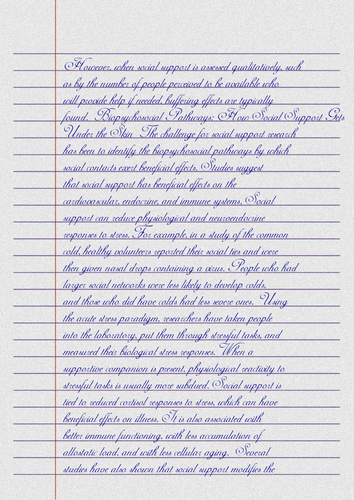 However, when social support is assessed qualitatively, such
as by the number of people perceived to be available who
will provide help if needed, buffering effects are typically
found. Biopsychosocial Pathways: How Social Support Gets
Under the Skin The challenge for social support research
has been to identify the biopsychosocial pathways by which
social contacts exert beneficial effects. Studies suggest
that social support has beneficial effects on the
cardiovascular, endocrine, and immune systems. Social
support can reduce physiological and neuroendocrine
responses to stress. For example, in a study of the common
cold, healthy volunteers reported their social ties and were
then given nasal drops containing a virus. People who had
larger social networks were less likely to develop colds,
and those who did have colds had less severe ones. Using
the acute stress paradigm, researchers have taken people
into the laboratory, put them through stressful tasks, and
measured their biological stress responses. When a
supportive companion is present, physiological reactivity to
stressful tasks is usually more subdued. Social support is
tied to reduced cortisol responses to stress, which can have
beneficial effects on illness. It is also associated with
better immune functioning, with less accumulation of
allostatic load, and with less cellular aging. Several
studies have also shown that social support modifies the